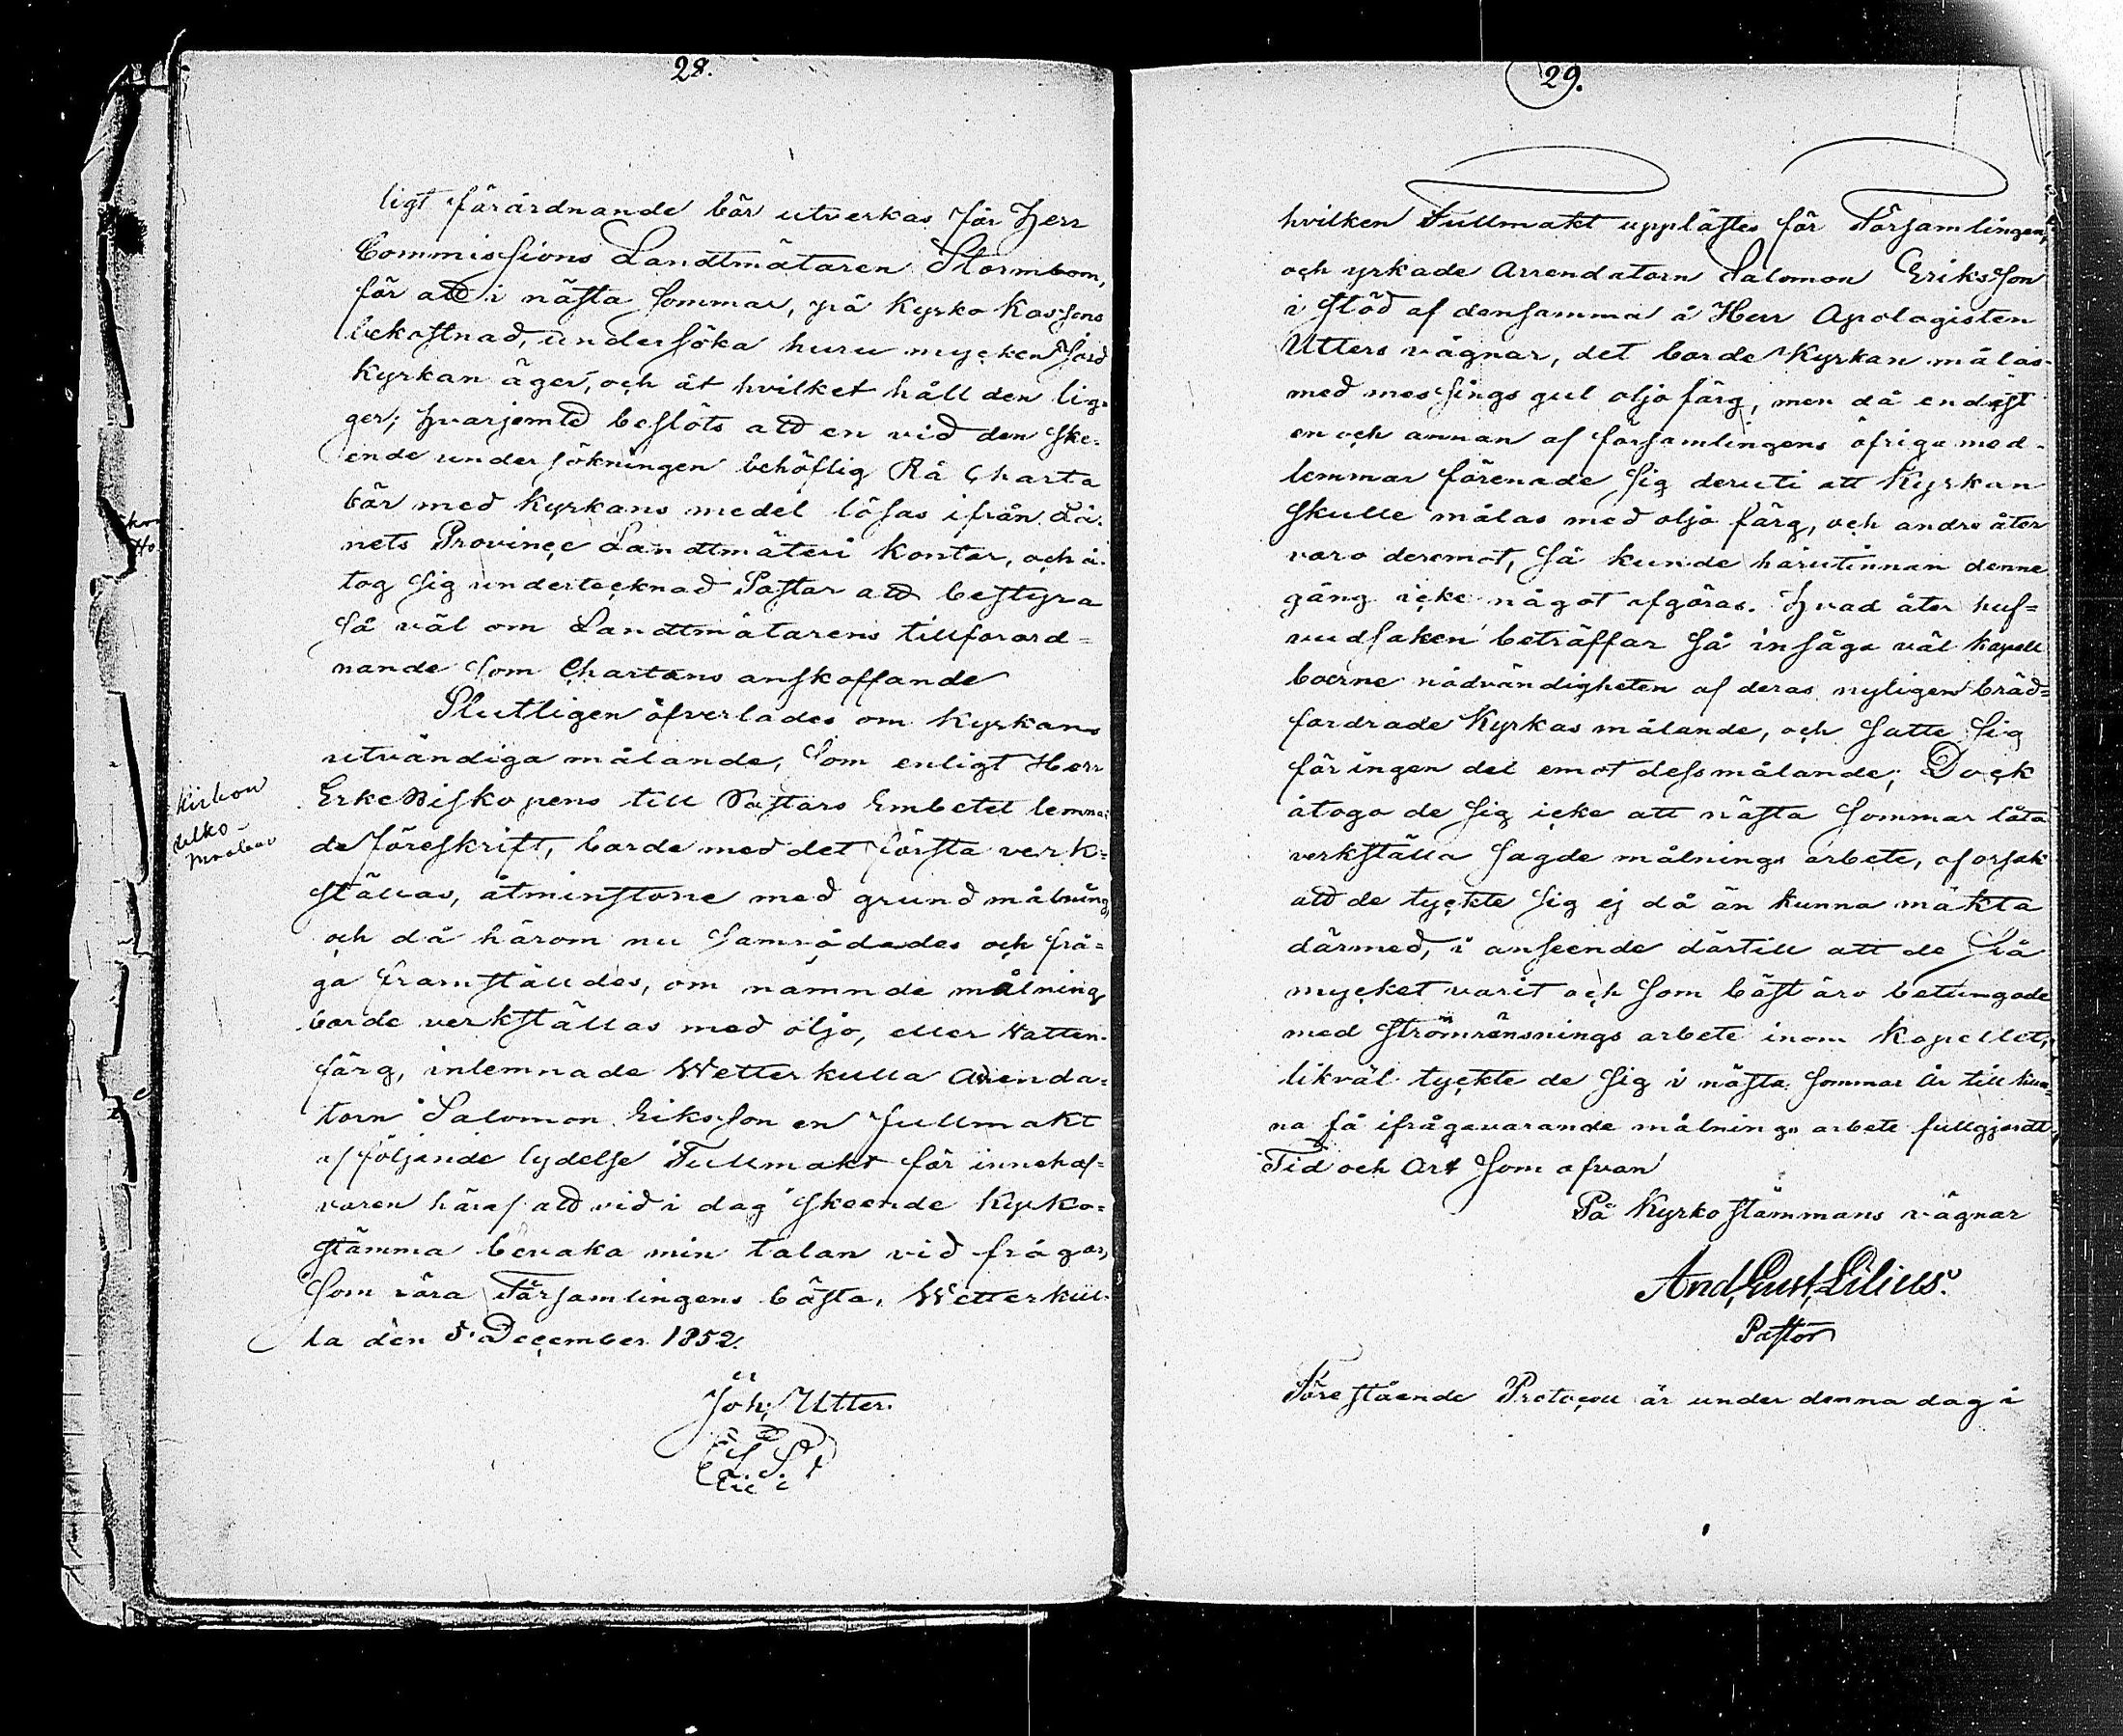 28.
ligt förordnande bör utverkas för Herr
Commissions Landtmätaren Stormbom,
för att i nästa sommar, på Kyrko Kassans
bekostnad, undersöka huru mycken Jord
Kyrkan äger, och åt hvilket håll den lig-
ger; hvarjemte beslöts att en vid den ske-
ende undersökningen behöflig Rå Charta
bör med Kyrkans medel lösas ifrån Lä-
nets Province Landtmäteri Kontor, och å-
tog sig undertecknad Pastor att bestyra
så väl om Landtmätarens tillförord-
nande som Chartans anskaffande
Slutligen öfverlades om Kyrkans
utvändiga målande, som enligt Herr
Erke Biskopens till Pastors Embetet lemna-
de föreskrift, borde med det första verk-
ställas, åtminstone med grund målning,
och då härom nu samrådades och frå-
ga framställdes, om nämnde målning
borde verkställas med oljo, eller Vatten-
färg, inlemnade Wetterkulla Arrenda-
torn Salomon Eriksson en fullmakt
af följande lydelse Fullmakt för innehaf-
varen häraf att vid i dag skeende Kyrko-
stämma bevaka min talan vid frågor,
som röra Församlingens bästa. Wetterkul-
la den 5 December 1852.
Joh; Utter.
Kirkon
ulko-
maalaus
29.
hvilken Fullmakt upplästes för Församlingen,
och yrkade Arrendatorn Salomon Eriksson
i stöd af densamma å Herr Apologisten
Utters vägnar, det borde Kyrkan målas
med messings gul oljo färg, men då endast
en och annan af församlingens öfriga med-
lemmar förenade sig deruti att Kyrkan
skulle målas med oljo färg, och andre åter
voro deremot, så kunde härutinnan denne
gång icke något afgöras. Hvad åter huf-
vudsaken beträffar så insågo väl Kapell
boerne nödvändigheten af deras nyligen bräd-
fordrade Kyrkas målande, och satte sig
för ingen del emot dess målande; Dock
åtogo de sig icke att nästa sommar låta
verkställa sagde målnings arbete, af orsak
att de tyckte sig ej då än kunna mäkta
därmed, i anseende därtill att de så
mycket varit och som bäst äro betungade
med strömrensnings arbete inom Kapellet,
likväl tyckte de sig i nästa sommar År till kun-
na få ifrågavarande målnings arbete fullgjordt.
Tid och Ort som ofvan
På Kyrkostämmans vägnar
And; Gust; Lilius.
Pastor
Förestående Protocoll är under denna dag i